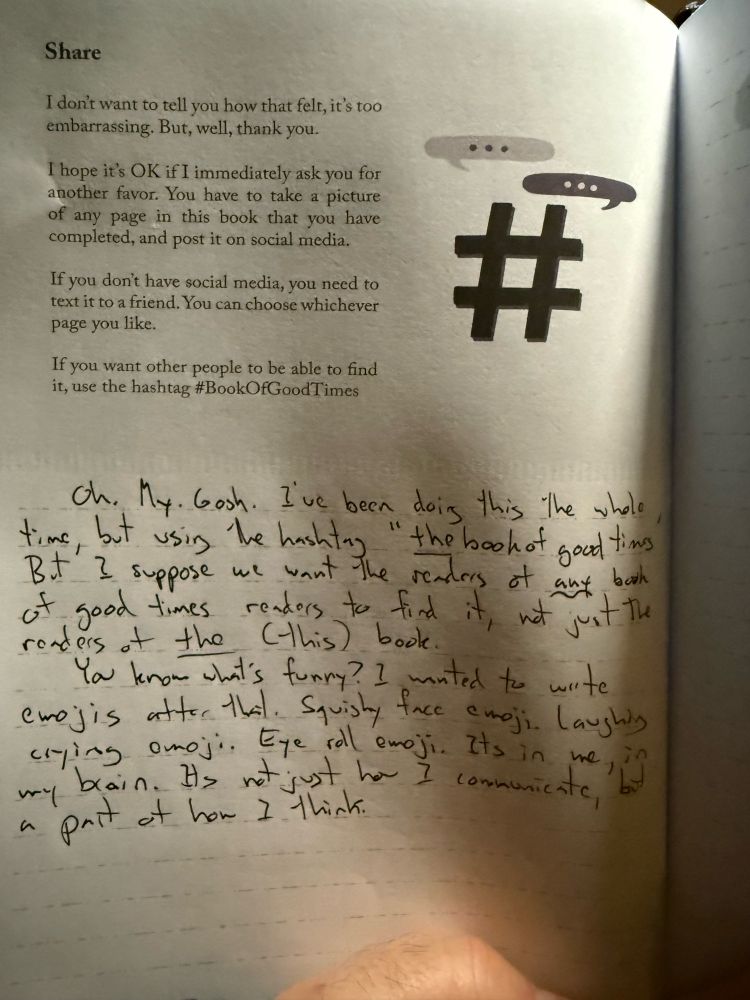 Share
I don't want to tell you how that felt, it's too
embarrassing. But, well, thank you.
I hope it's OK if I immediately ask you for
another favor. You have to take a picture
of any page in this book that you have
completed, and post it on social media.
If you don't have social media, you need to
text it to a friend. You can choose whichever
page you like.
If you want other people to be able to find
it, use the hashtag #BookOfGoodTimes
#
Oh. My. Gosh. I've been doing this the whole
time, but using the hashtag "the book of good times
But I suppose we want the readers of any book
of good times readers to find it, not just the
readers of the (this) book.
You know what's funny? I wanted to write
emojis after that. Squishy face emoji. Laughing
crying emoji. Eye roll emoji. Its in me, in
my brain. Its not just how I communicate, but
a part of how I think.